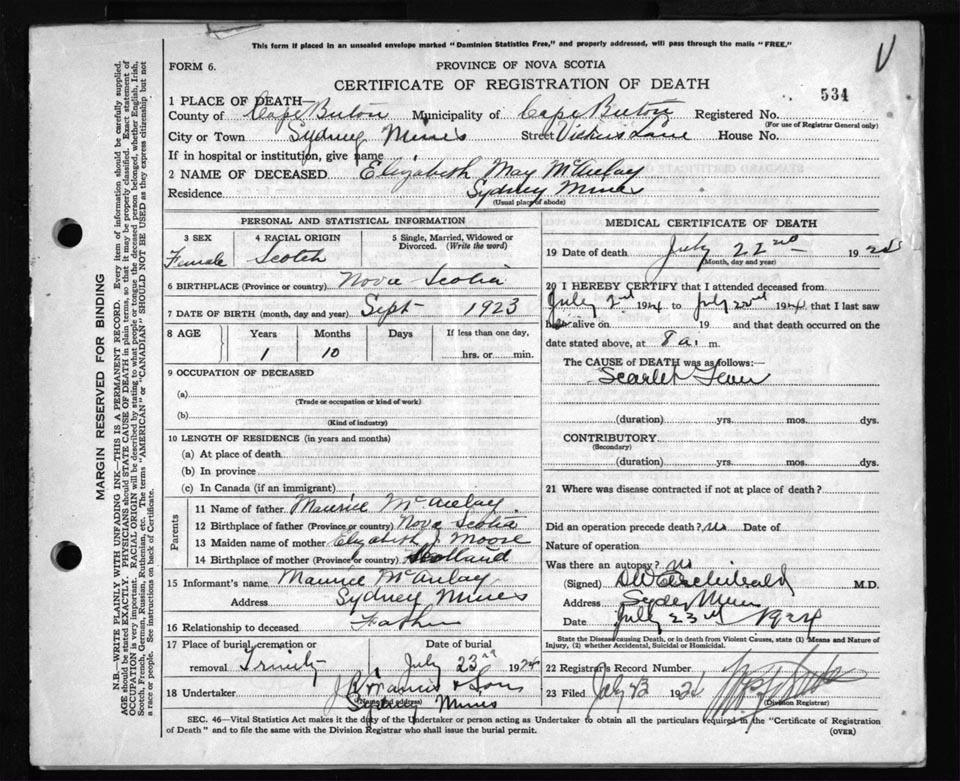 This form if placed in an unsealed envelope marked "Dominion Statistics Free," and properly addressed, will pass through the mails "FREE."
FORM 6.
PROVINCE OF NOVA SCOTIA
CERTIFICATE OF REGISTRATION OF DEATH
1 PLACE OF DEATH—
534
County of Cape Breton Municipality of Cape Breton Registered No.
(For use of Registrar General only)
City or Town Sydney Mines Street Vickers Lane House No.
If in hospital or institution, give name
2 NAME OF DECEASED Elizabeth May McAulay
Residence Sydney Mines
(Usual place of abode)
PERSONAL AND STATISTICAL INFORMATION
3 SEX Female
4 RACIAL ORIGIN Scotch
5 Single, Married, Widowed or Divorced. (Write the word)
6 BIRTHPLACE (Province or country) Nova Scotia
7 DATE OF BIRTH (month, day and year) Sept 1923
8 AGE Years Months Days If less than one day,
1 10 hrs. or min.
9 OCCUPATION OF DECEASED
(a)
(Trade or occupation or kind of work)
(b)
(Kind of industry)
10 LENGTH OF RESIDENCE (in years and months)
(a) At place of death
(b) In province
(c) In Canada (if an immigrant)
Parents
11 Name of father Maurice McAulay
12 Birthplace of father (Province or country) Nova Scotia
13 Maiden name of mother Elizabeth J. Moore
14 Birthplace of mother (Province or country) Scotland
15 Informant's name Maurice McAulay
Address Sydney Mines
16 Relationship to deceased Father
17 Place of burial, cremation or removal Trinity
Date of burial July 23rd 1924
18 Undertaker & Sons
(Name and address)
Sydney Mines
MEDICAL CERTIFICATE OF DEATH
19 Date of death July 22nd 19
(Month, day and year)
20 I HEREBY CERTIFY that I attended deceased from
July 2nd 1924 to July 22nd 1924 that I last saw
alive on 19 and that death occurred on the
date stated above, at 8 a. m.
The CAUSE of DEATH was as follows:—
Scarlet Fever
(duration) yrs. mos. dys.
CONTRIBUTORY
(Secondary)
(duration) yrs. mos. dys.
21 Where was disease contracted if not at place of death?
Did an operation precede death? No Date of
Nature of operation
Was there an autopsy? No
(Signed) Archibald M.D.
Address Sydney Mines
Date July 23rd 1924
State the Disease causing Death, or in death from Violent Causes, state (1) Means and Nature of Injury, (2) whether Accidental, Suicidal or Homicidal.
22 Registrar's Record Number
23 Filed July 23 1924
(Division Registrar)
SEC. 46—Vital Statistics Act makes it the duty of the Undertaker or person acting as Undertaker to obtain all the particulars required in the "Certificate of Registration
of Death" and to file the same with the Division Registrar who shall issue the burial permit. (OVER)
MARGIN RESERVED FOR BINDING
N.B.—WRITE PLAINLY WITH UNFADING INK—THIS IS A PERMANENT RECORD. Every item of information should be carefully supplied.
AGE should be stated EXACTLY. PHYSICIANS should STATE CAUSE OF DEATH in plain terms, so that it may be properly classified. Exact statement of
OCCUPATION is very important. RACIAL ORIGIN will be described by stating to what people or tongue the deceased person belonged, whether English, Irish,
Scotch, French, German, Russian, Ruthenian, etc. The terms "AMERICAN" or "CANADIAN" SHOULD NOT BE USED as they express citizenship but not
a race or people. See instructions on back of Certificate.